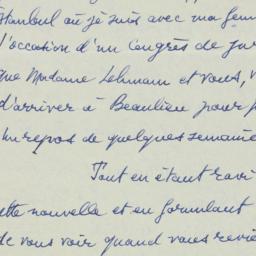 Istanbul où je suis avec ma fem
l'occasion d'un Congrès de ju
que Madame Lehmann et vous,
d'arriver à Beaulieu pour
un repos de quelques semaine
Tout en étant ravi
cette nouvelle et en formulant
de vous voir quand vous revie